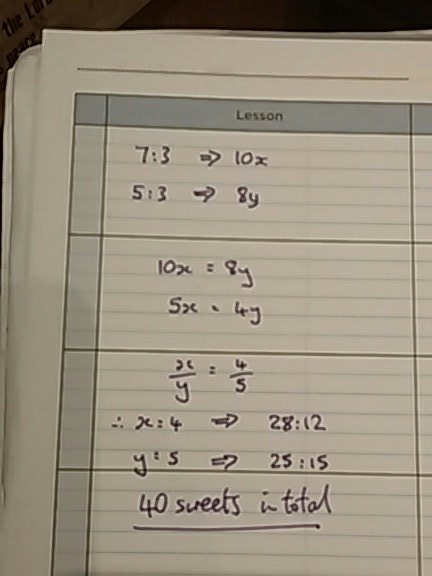 the Lord
peace
Lesson
7:3 ⇒ 10x
5:3 ⇒ 8y
10x = 8y
5x = 4y
x/y = 4/5
∴ x=4 ⇒ 28:12
y=5 ⇒ 25:15
40 sweets in total